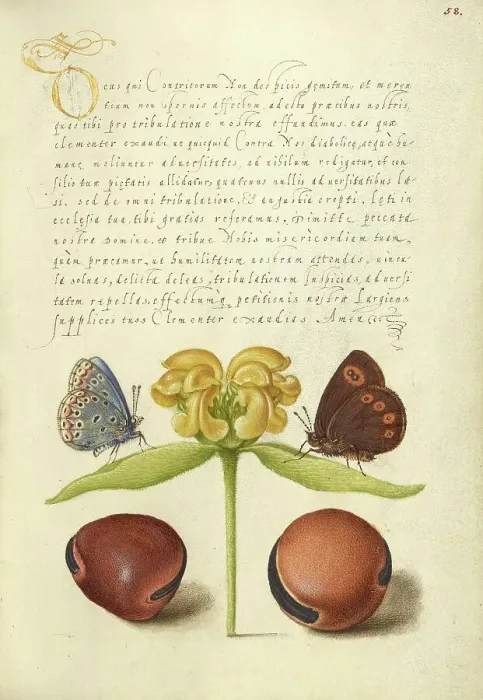 58.
Deus qui Contritorum Non despicis gemitum, et meren
tium non spernis affectum, adesto precibus nostris,
quas tibi pro tribulatione nostra effundimus. eas quæ
clementer exaudi ut quicquid Contra Nos diabolicæ, atque hu-
manæ moliuntur aduersitates, ad nihilum redigatur, et con
silio tuæ pietatis allidatur, quatenus nullis aduersitatibus læ
si. sed de omni tribulatione, Et angustia erepti. Leti in
ecclesia tua, tibi gratias referamus. Dimitte peccata
nostra Domine. et tribue Nobis misericordiam tuam,
quam precamur, ut humilitatem nostram attendas, uincu
la soluas, delicta deleas, tribulationem Inspicias, aduersi
tatem repellas, effectumq petitionis nostræ Largiens
supplices tuos Clementer exaudias Amen